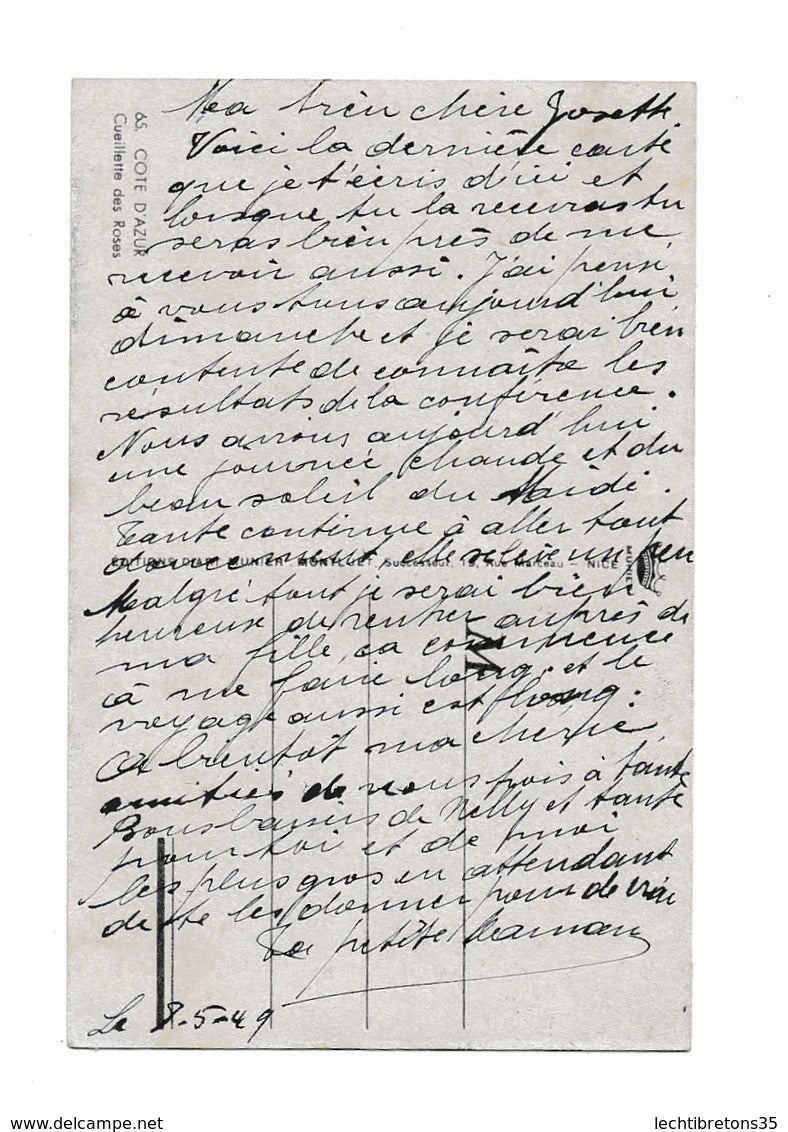 Ma bien chère Josette.
Voici la dernière carte
que je t'écris d'ici et
lorsque tu la recevras tu
seras bien près de me
recevoir aussi. J'ai pensé
à vous tous aujourd'hui
dimanche et je serai bien
contente de connaître les
résultats de la conférence.
Nous avons aujourd'hui
une journée chaude et du
beau soleil du Midi.
Tante continue à aller tout
doucement, elle se lève un peu
Malgré tout je serai bien
heureuse de rentrer auprès de
ma fille, ça commence
à me faire long. et le
voyage aussi est long.
A bientôt ma cherie
amitiés de nous trois à tante
Bons baisers de Nelly et tante
pour toi et de moi
les plus gros en attendant
de te les donner pour de vrai
Ta petite Maman
Le 8-5-49
65. COTE D'AZUR
Cueillette des Roses
EDITIONS D'ART MUNIER. MONTLUET, Successeur, 15, Rue Marceau - NICE
MUNIER
M
lechtibretons35